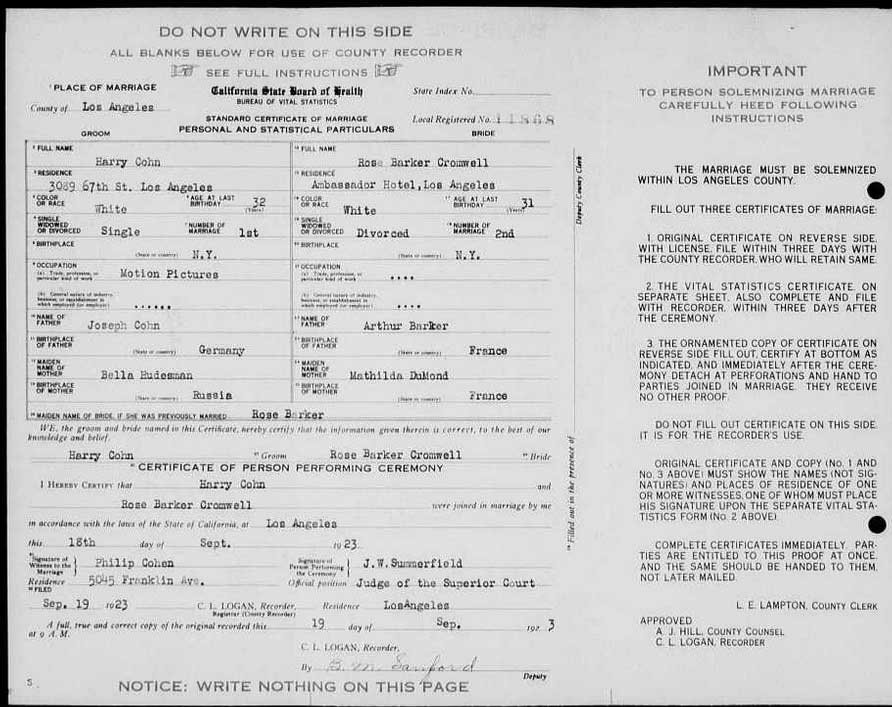 DO NOT WRITE ON THIS SIDE
ALL BLANKS BELOW FOR USE OF COUNTY RECORDER
SEE FULL INSTRUCTIONS
PLACE OF MARRIAGE
California State Board of Health
State Index No.
County of Los Angeles
BUREAU OF VITAL STATISTICS
STANDARD CERTIFICATE OF MARRIAGE
Local Registered No. 11868
GROOM PERSONAL AND STATISTICAL PARTICULARS BRIDE
FULL NAME Harry Cohn
FULL NAME Rose Barker Cromwell
RESIDENCE 3089 67th St. Los Angeles
RESIDENCE Ambassador Hotel, Los Angeles
COLOR OR RACE White AGE AT LAST BIRTHDAY 32 (Years)
COLOR OR RACE White AGE AT LAST BIRTHDAY 31 (Years)
SINGLE WIDOWED OR DIVORCED Single NUMBER OF MARRIAGE 1st
SINGLE WIDOWED OR DIVORCED Divorced NUMBER OF MARRIAGE 2nd
BIRTHPLACE (State or country) N.Y.
BIRTHPLACE (State or country) N.Y.
OCCUPATION
(a) Trade, profession, or particular kind of work Motion Pictures
OCCUPATION
(a) Trade, profession, or particular kind of work ....
(b) General nature of industry, business, or establishment in which employed (or employer) ......
(b) General nature of industry, business, or establishment in which employed (or employer) ....
NAME OF FATHER Joseph Cohn
NAME OF FATHER Arthur Barker
BIRTHPLACE OF FATHER (State or country) Germany
BIRTHPLACE OF FATHER (State or country) France
MAIDEN NAME OF MOTHER Bella Hudesman
MAIDEN NAME OF MOTHER Mathilda DuMond
BIRTHPLACE OF MOTHER (State or country) Russia
BIRTHPLACE OF MOTHER (State or country) France
MAIDEN NAME OF BRIDE, IF SHE WAS PREVIOUSLY MARRIED Rose Barker
WE, the groom and bride named in this Certificate, hereby certify that the information given therein is correct, to the best of our
knowledge and belief.
Harry Cohn Groom Rose Barker Cromwell Bride
CERTIFICATE OF PERSON PERFORMING CEREMONY
I HEREBY CERTIFY that Harry Cohn and
Rose Barker Cromwell were joined in marriage by me
in accordance with the laws of the State of California, at Los Angeles
this 18th day of Sept. 1923
Signature of Witness to the Marriage Philip Cohen
Signature of Person Performing the Ceremony J.W.Summerfield
Residence 5045 Franklin Ave. Official position Judge of the Superior Court
FILED
Sep. 19 1923 C. L. LOGAN, Recorder, Residence LosAngeles
Registrar (County Recorder)
A full, true and correct copy of the original recorded this 19 day of Sep. 1923
at 9 A.M.
C. L. LOGAN, Recorder,
By B. M. Sanford
Deputy
S
NOTICE: WRITE NOTHING ON THIS PAGE
Deputy County Clerk
Filled out in the presence of
IMPORTANT
TO PERSON SOLEMNIZING MARRIAGE
CAREFULLY HEED FOLLOWING
INSTRUCTIONS
THE MARRIAGE MUST BE SOLEMNIZED
WITHIN LOS ANGELES COUNTY.
FILL OUT THREE CERTIFICATES OF MARRIAGE:
1. ORIGINAL CERTIFICATE ON REVERSE SIDE,
WITH LICENSE, FILE WITHIN THREE DAYS WITH
THE COUNTY RECORDER, WHO WILL RETAIN SAME.
2. THE VITAL STATISTICS CERTIFICATE, ON
SEPARATE SHEET, ALSO COMPLETE AND FILE
WITH RECORDER, WITHIN THREE DAYS AFTER
THE CEREMONY.
3. THE ORNAMENTED COPY OF CERTIFICATE ON
REVERSE SIDE FILL OUT, CERTIFY AT BOTTOM AS
INDICATED, AND IMMEDIATELY AFTER THE CERE-
MONY DETACH AT PERFORATIONS AND HAND TO
PARTIES JOINED IN MARRIAGE. THEY RECEIVE
NO OTHER PROOF.
DO NOT FILL OUT CERTIFICATE ON THIS SIDE.
IT IS FOR THE RECORDER'S USE.
ORIGINAL CERTIFICATE AND COPY (NO. 1 AND
NO. 3 ABOVE) MUST SHOW THE NAMES (NOT SIG-
NATURES) AND PLACES OF RESIDENCE OF ONE
OR MORE WITNESSES, ONE OF WHOM MUST PLACE
HIS SIGNATURE UPON THE SEPARATE VITAL STA-
TISTICS FORM (NO. 2 ABOVE).
COMPLETE CERTIFICATES IMMEDIATELY. PAR-
TIES ARE ENTITLED TO THIS PROOF AT ONCE,
AND THE SAME SHOULD BE HANDED TO THEM,
NOT LATER MAILED.
L. E. LAMPTON, COUNTY CLERK
APPROVED
A. J. HILL, COUNTY COUNSEL
C. L. LOGAN, RECORDER